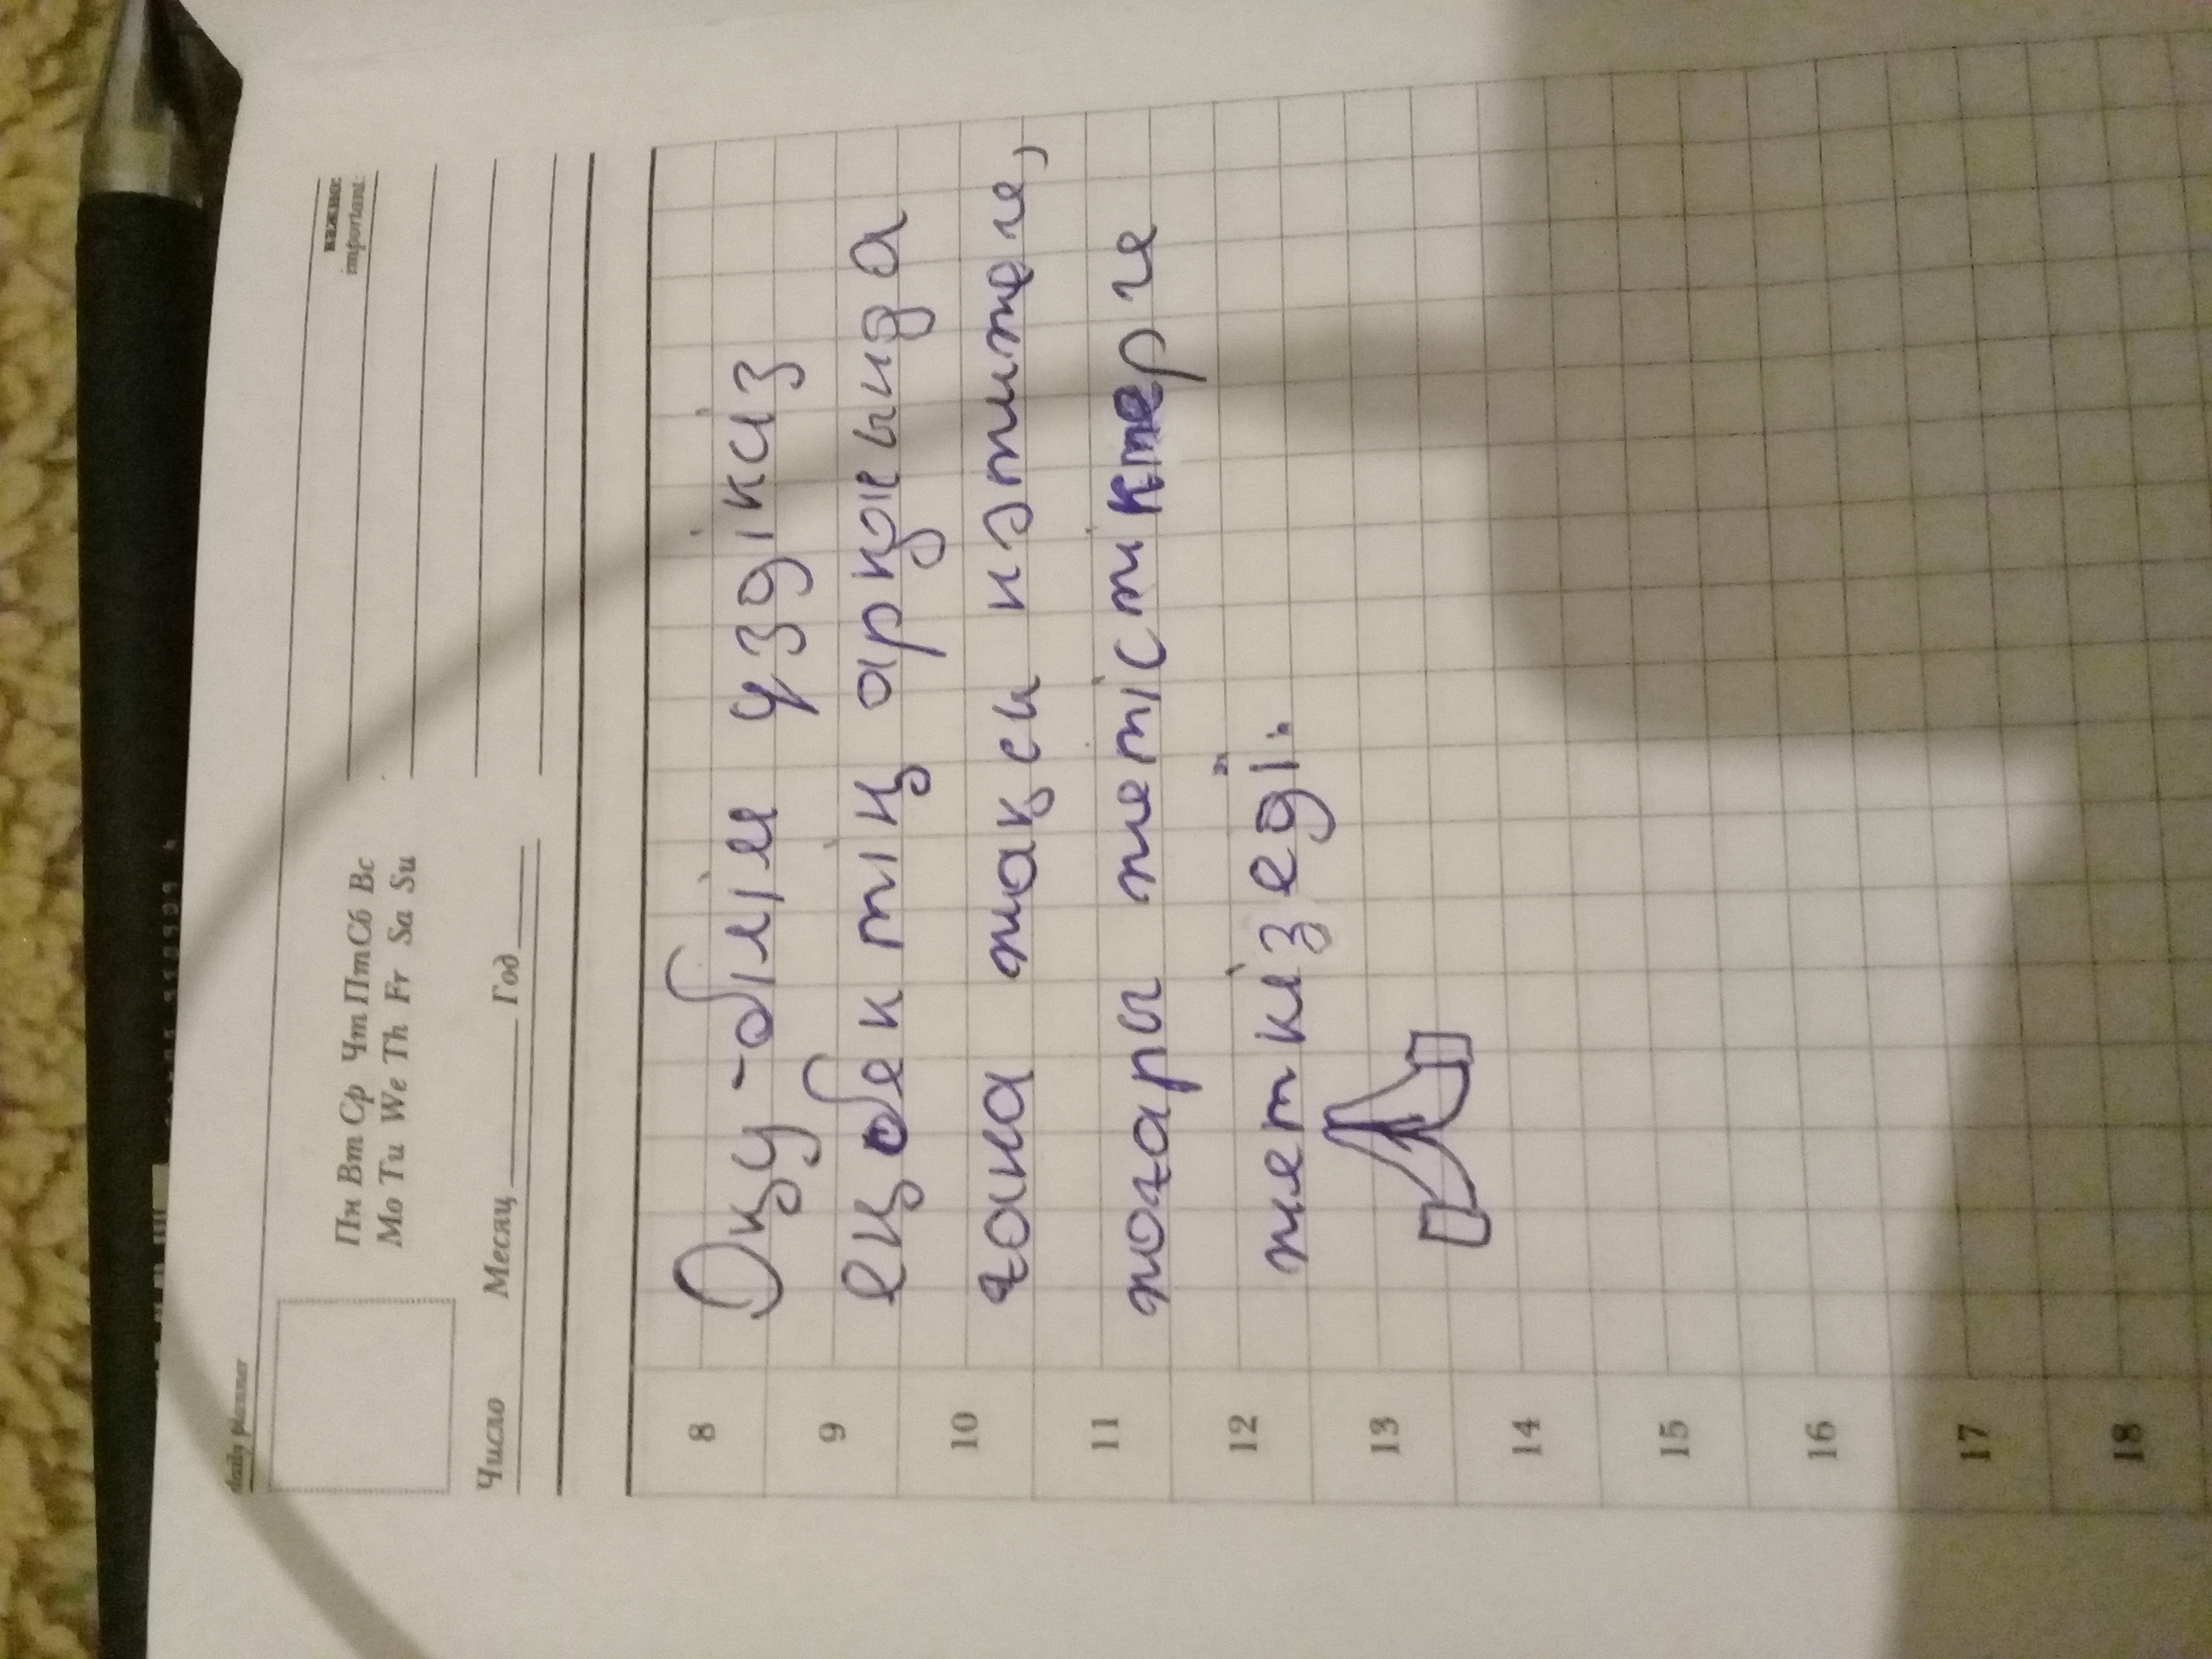 daily planner
важно:
important:
Пн Вт Ср Чт Пт Сб Вс
Mo Tu We Th Fr Sa Su
Число Месяц Год
8 Оқу-білім үздіксіз
9 еңбектің арқасында
10 ғана жақсы нәтиже,
11 жоғары жетістіктерге
12 жеткізеді.
13
14
15
16
17
18